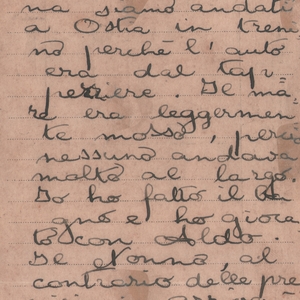 na siamo andati
a Ostia in treni
no perché l'auto
era dal tap
pezziere. Il ma
re era leggermen
te mosso, perciò
nessuno andava
molto al largo.
Io ho fatto il ba
gno e ho gioca
to con Aldo.
Il nonno, al
contrario delle pre